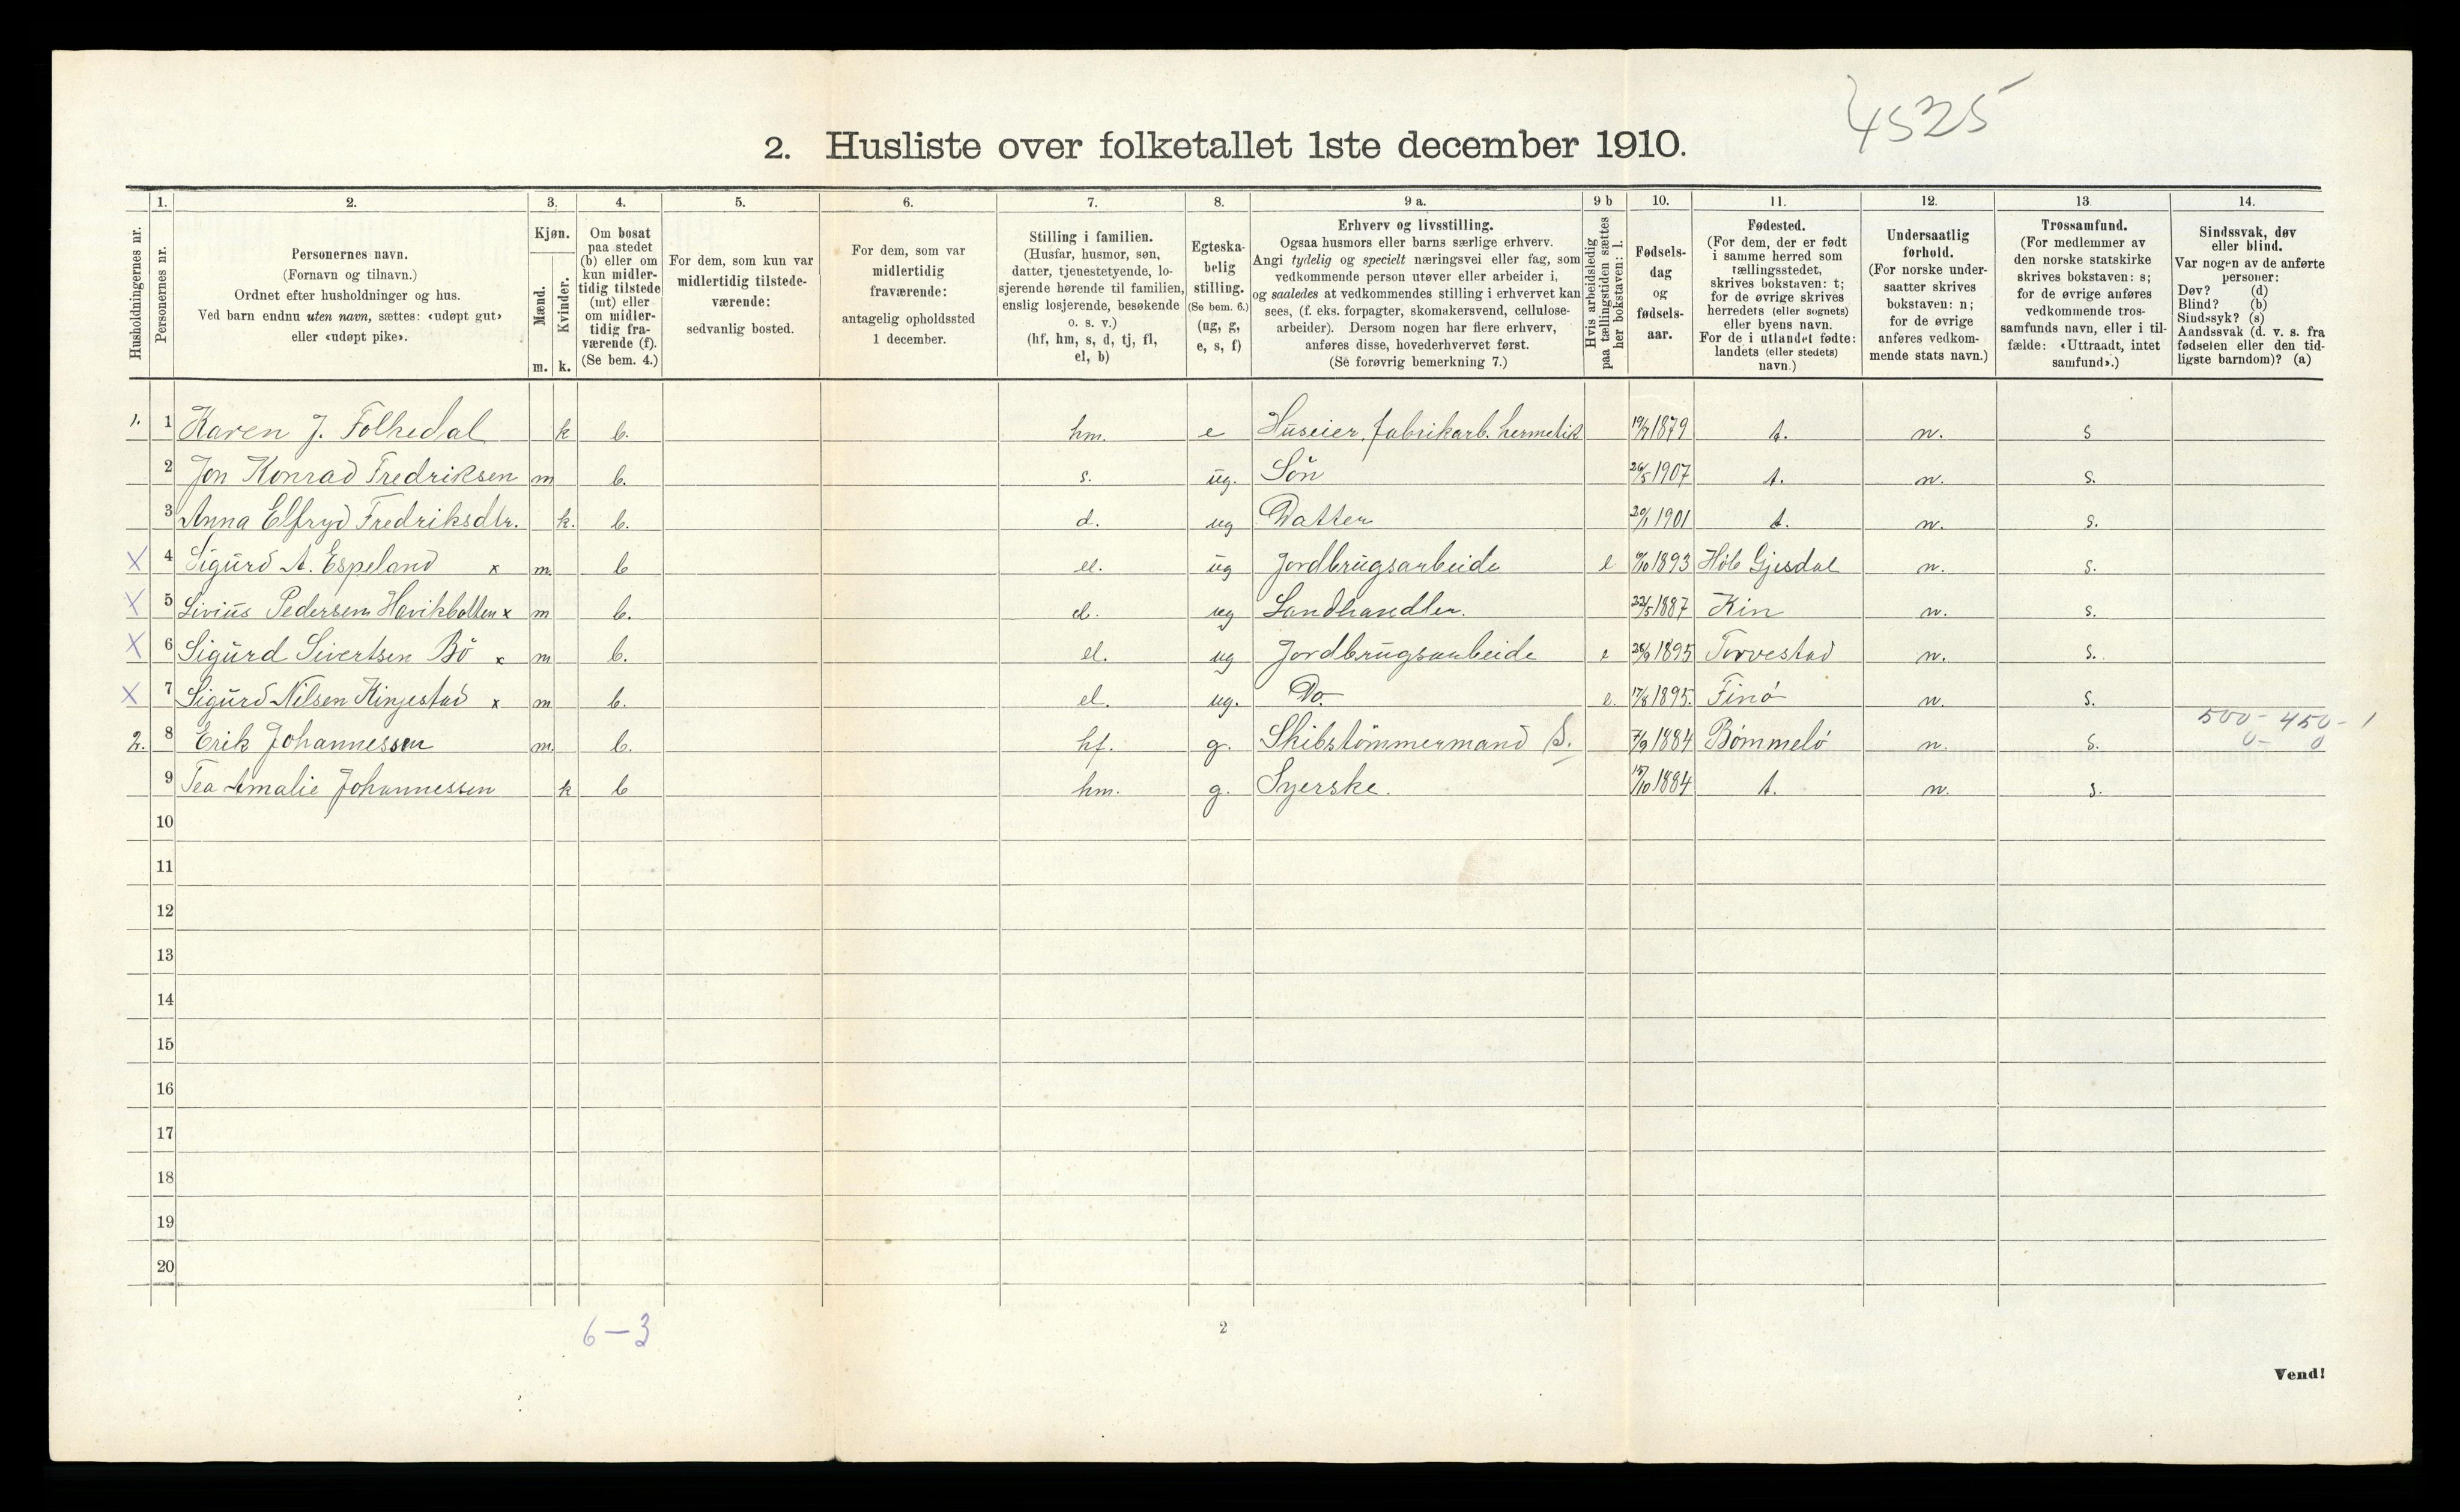 4525
2. Husliste over folketallet 1ste december 1910.
Husholdningernes nr.
1.
Personernes nr.
2.
Personernes navn.
(Fornavn og tilnavn.)
Ordnet efter husholdninger og hus.
Ved barn endnu uten navn, sættes: «udøpt gut»
eller «udøpt pike».
3.
Kjøn.
Mænd.
Kvinder.
m. k.
4.
Om bosat
paa stedet
(b) eller om
kun midler-
tidig tilstede
(mt) eller
om midler-
tidig fra-
værende (f).
(Se bem. 4.)
5.
For dem, som kun var
midlertidig tilstede-
værende:
sedvanlig bosted.
6.
For dem, som var
midlertidig
fraværende:
antagelig opholdssted
1 december.
7.
Stilling i familien.
(Husfar, husmor, søn,
datter, tjenestetyende, lo-
sjerende hørende til familien,
enslig losjerende, besøkende
o. s. v.)
(hf, hm, s, d, tj, fl,
el, b)
8.
Egteska-
belig
stilling.
(Se bem. 6.)
(ug, g,
e, s, f)
9 a.
Erhverv og livsstilling.
Ogsaa husmors eller barns særlige erhverv.
Angi tydelig og specielt næringsvei eller fag, som
vedkommende person utøver eller arbeider i,
og saaledes at vedkommendes stilling i erhvervet kan
sees, (f. eks. forpagter, skomakersvend, cellulose-
arbeider). Dersom nogen har flere erhverv,
anføres disse, hovederhvervet først.
(Se forøvrig bemerkning 7.)
9 b
Hvis arbeidsledig
paa tællingstiden sættes
her bokstaven: l.
10.
Fødsels-
dag
og
fødsels-
aar.
11.
Fødested.
(For dem, der er født
i samme herred som
tællingsstedet,
skrives bokstaven: t;
for de øvrige skrives
herredets (eller sognets)
eller byens navn.
For de i utlandet fødte:
landets (eller stedets)
navn.)
12.
Undersaatlig
forhold.
(For norske under-
saatter skrives
bokstaven: n;
for de øvrige
anføres vedkom-
mende stats navn.)
13
Trossamfund.
(For medlemmer av
den norske statskirke
skrives bokstaven: s;
for de øvrige anføres
vedkommende tros-
samfunds navn, eller i til-
fælde: «Uttraadt, intet
samfund».)
14.
Sindssvak, døv
eller blind.
Var nogen av de anførte
personer:
Døv? (d)
Blind? (b)
Sindssyk? (s)
Aandssvak (d. v. s. fra
fødselen eller den tid-
ligste barndom)? (a)
1. 1 Karen J. Folkedal k b. hm. e Huseier, fabrikarb. hermetik 1879 t. n. s
2 Jon Konrad Fredriksen m b. s. ug. Søn 26/5 1907 t. n. s.
3 Anna Elfryd Fredriksdtr. k. b. d. ug Datter 20/1 1901 t. n. s.
X 4 Sigurd A. Espeland x m. b el. ug Jordbrugsarbeide l 1893 Høle Gjesdal n. s.
X 5 Livius Pedersen Havikbotten x m b. el. ug Landhandler. 22/5 1887 Kin n. s.
X 6 Sigurd Sivertsen Bø x m b. el. ug Jordbrugsarbeide l 28/9 1895 Torvestad n. s.
X 7 Sigurd Nilsen Kinjestad x m b. el. ug. Do. l. 17/8 1895. Finø n. s.
500- 450- 1
2. 8 Erik Johannessen m. b. hf. g. Skibstømmermand S. 7/9 1884 Bømmelø n. s. 0- 0
9 Tea Amalie Johannessen k b hm. g. Syerske. 15/10 1884 t. n. s.
10
11
12
13
14
15
16
17
18
19
20
6-3
2
Vend!